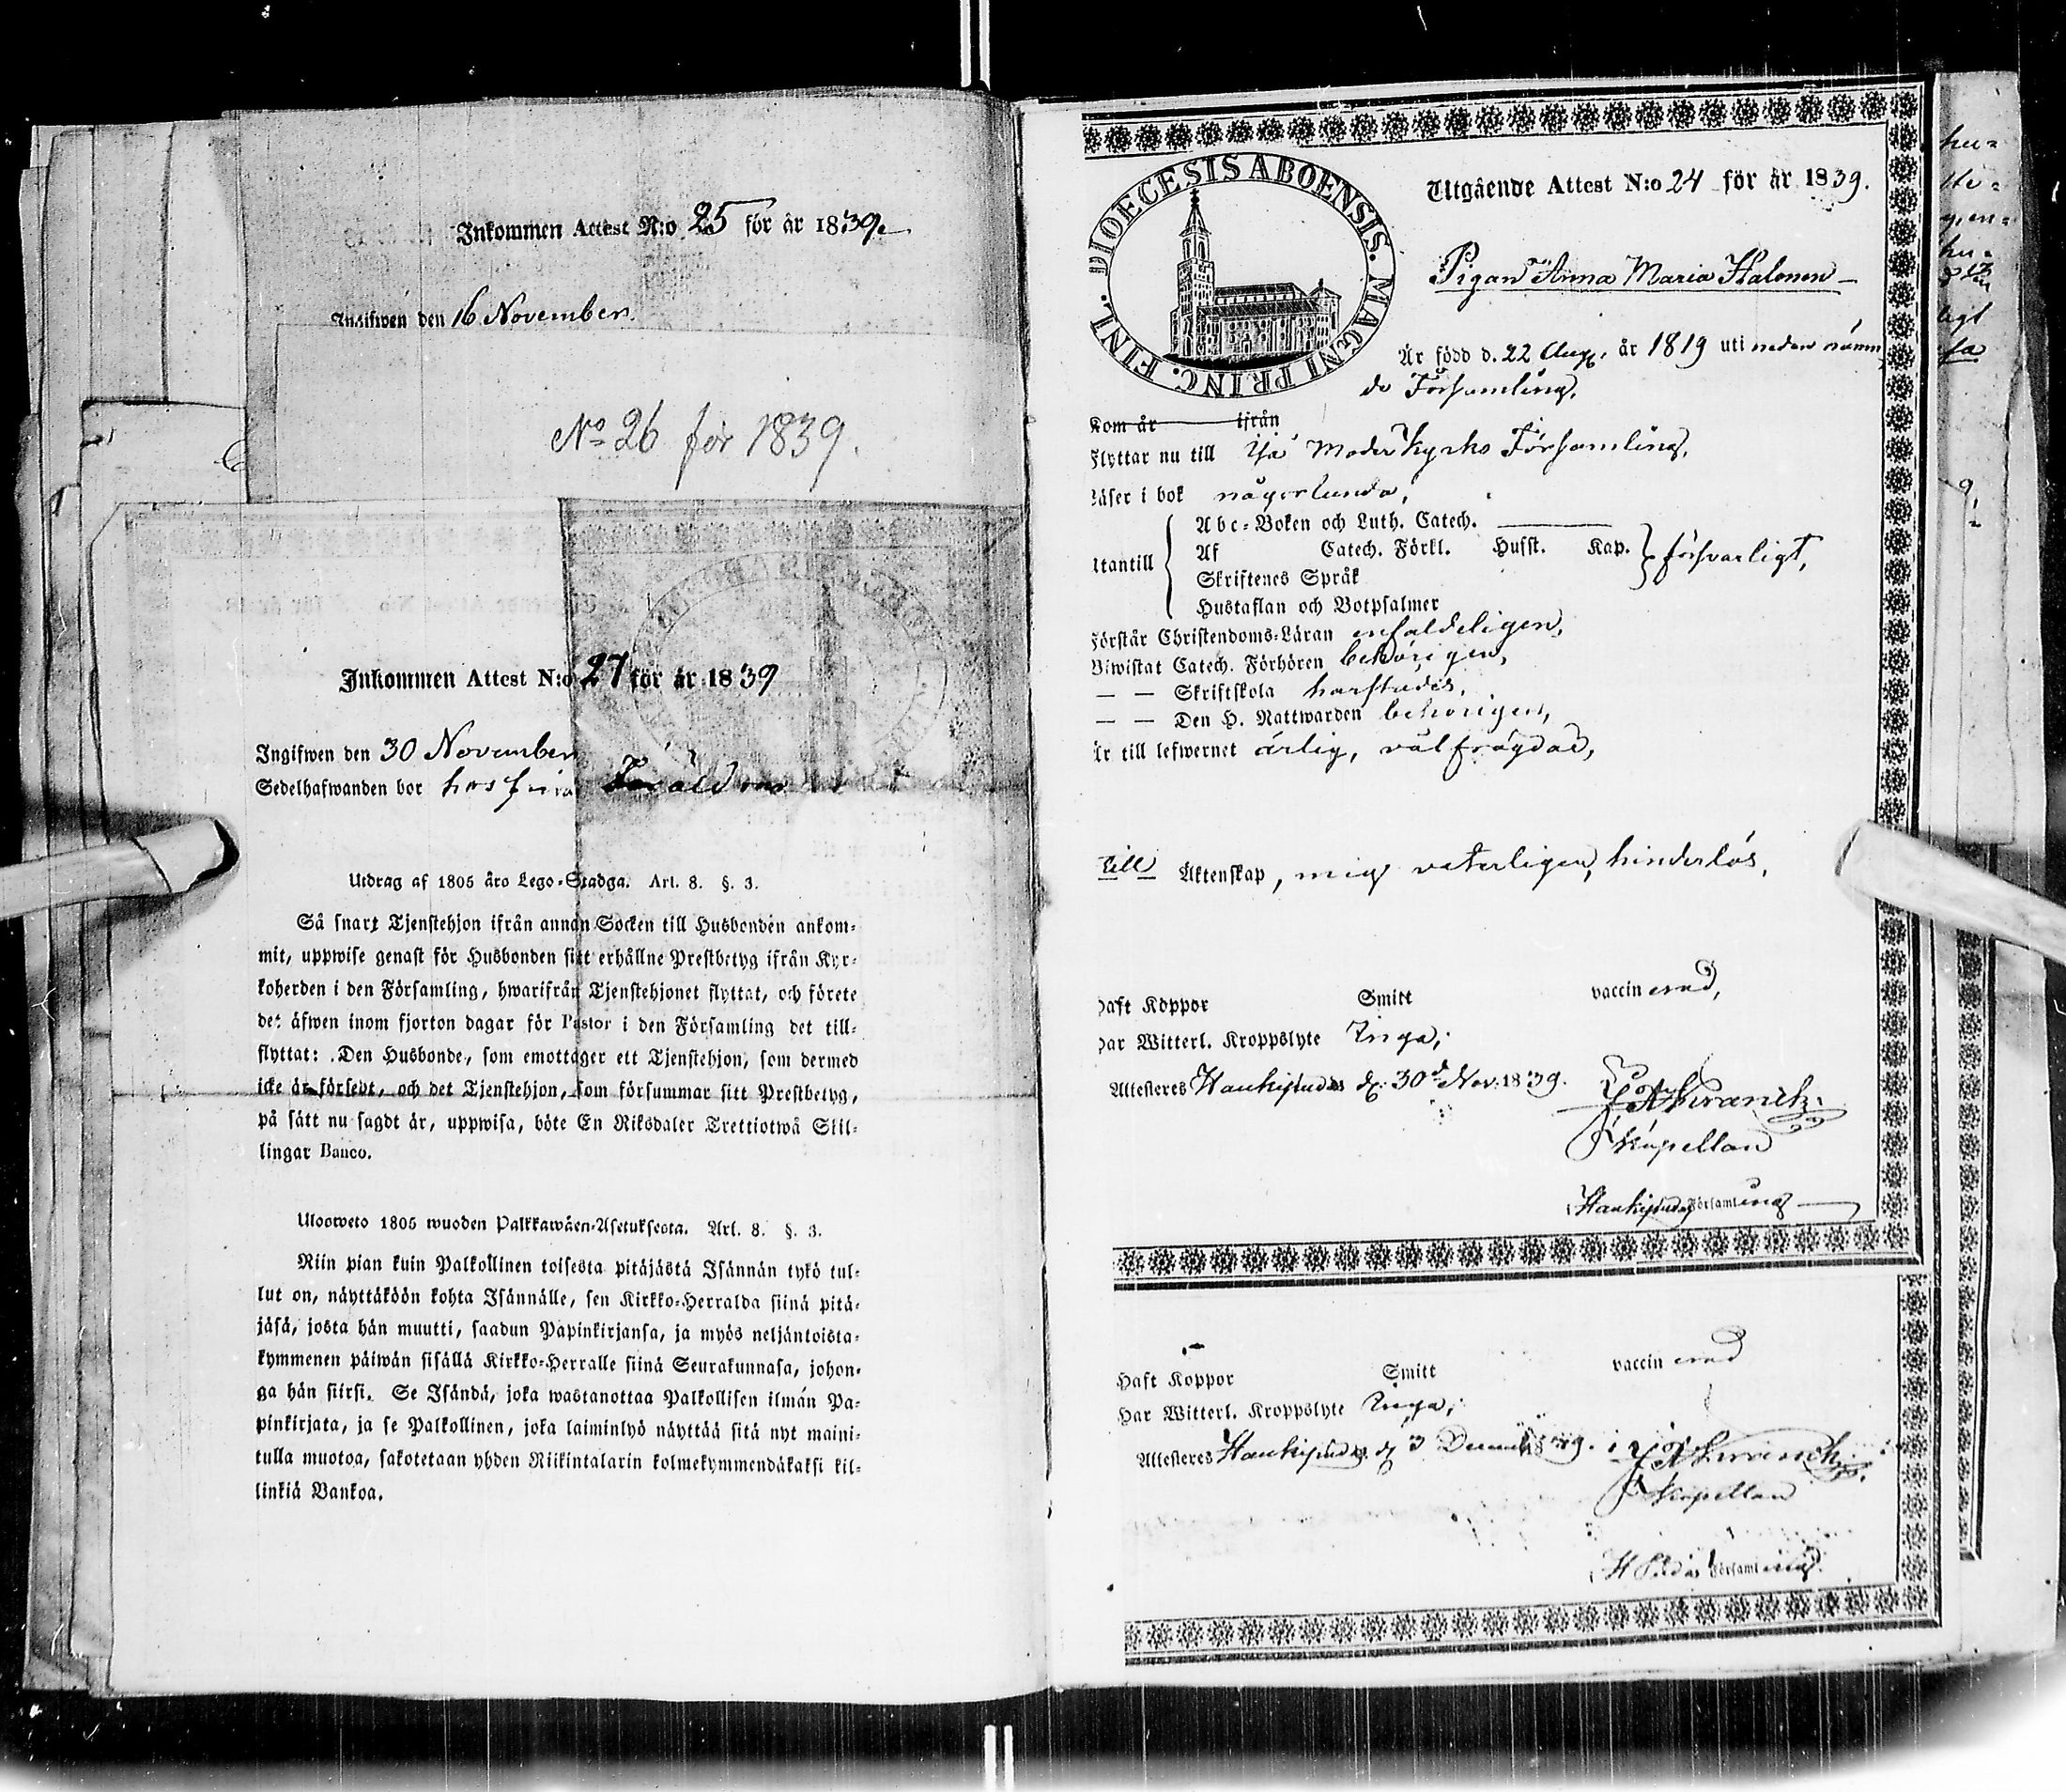 Inkommen Attest N:o 25 för år 1839.
Ingifwen den 16 November.
No 26 för 1839.
Inkommen Attest N:o 27 för år 1839
Ingifwen den 30 November
Sedelhafwanden bor hos sina Föräldrar
Utdrag af 1805 års Lego-Stadga. Art. 8. §. 3.
Så snart Tjenstehjon ifrån annan Socken till Husbonden ankom-
mit, uppwise genast för Husbonden sitt erhållne Prestbetyg ifrån Kyr-
koherden i den Församling, hwarifrån Tjenstehjonet flyttat, och förete
det äfwen inom fjorton dagar för Pastor i den Församling det till-
flyttat: Den Husbonde, som emottager ett Tjenstehjon, som dermed
icke är försedt, och det Tjenstehjon, som försummar sitt Prestbetyg,
på sätt nu sagdt är, uppwisa, böte En Riksdaler Trettiotwå Skil-
lingar Banco.
Ulosweto 1805 wuoden Palkkawäen-Asetuksesta. Art. 8. §. 3.
Niin pian kuin Palkollinen toisesta pitäjästä Isännän tykö tul-
lut on, näyttäköön kohta Isännälle, sen Kirkko-Herralda siinä pitä-
jäsä, josta hän muutti, saadun Papinkirjansa, ja myös neljäntoista-
kymmenen päiwän sisällä Kirkko-Herralle siinä Seurakunnasa, johon-
ga hän siirsi. Se Isändä, joka wastanottaa Palkollisen ilmán Pa-
pinkirjata, ja se Palkollinen, joka laiminlyö näyttää sitä nyt maini-
tulla muotoa, sakotetaan yhden Riikintalarin kolmekymmendäkaksi kil-
linkiä Bankoa.
DIOECESIS ABOENSIS. MAGNI PRINC. FINL.
Utgående Attest N:o 24 för år 1839.
Pigan Anna Maria Halonen
Är född d. 22 Aug. år 1819 uti nedan nämn
de Församling.
Kom år ifrån
Flyttar nu till Ijå Moder Kyrko Församling.
Läser i bok någorlunda,
Abc-Boken och Luth. Catech.
Utantill Af Catech. Förkl. Husst. Kap. försvarligt,
Skriftenes Språk
Hustaflan och Botpsalmer
Förstår Christendoms-Läran enfaldeligen,
Biwistat Catech. Förhören behörigen,
— — Skriftskola harstädes,
— — Den H. Nattwarden behörigen,
Är till lefwernet ärlig, välfrägdad,
till Äktenskap, mig veterligen, hinderlös,
Haft Koppor Smitt vaccinerad,
Har Witterl. Kroppslyte Inga,
Attesteres Haukipudas d. 30 Nov. 1839.
Kapellan
Haukipudas Församling
Haft Koppor Smitt vaccinerad
Har Witterl. Kroppslyte Inga,
Attesteres Haukipudas d. 3 Decemb. 1839.
Kapellan
H Pudas Församling.